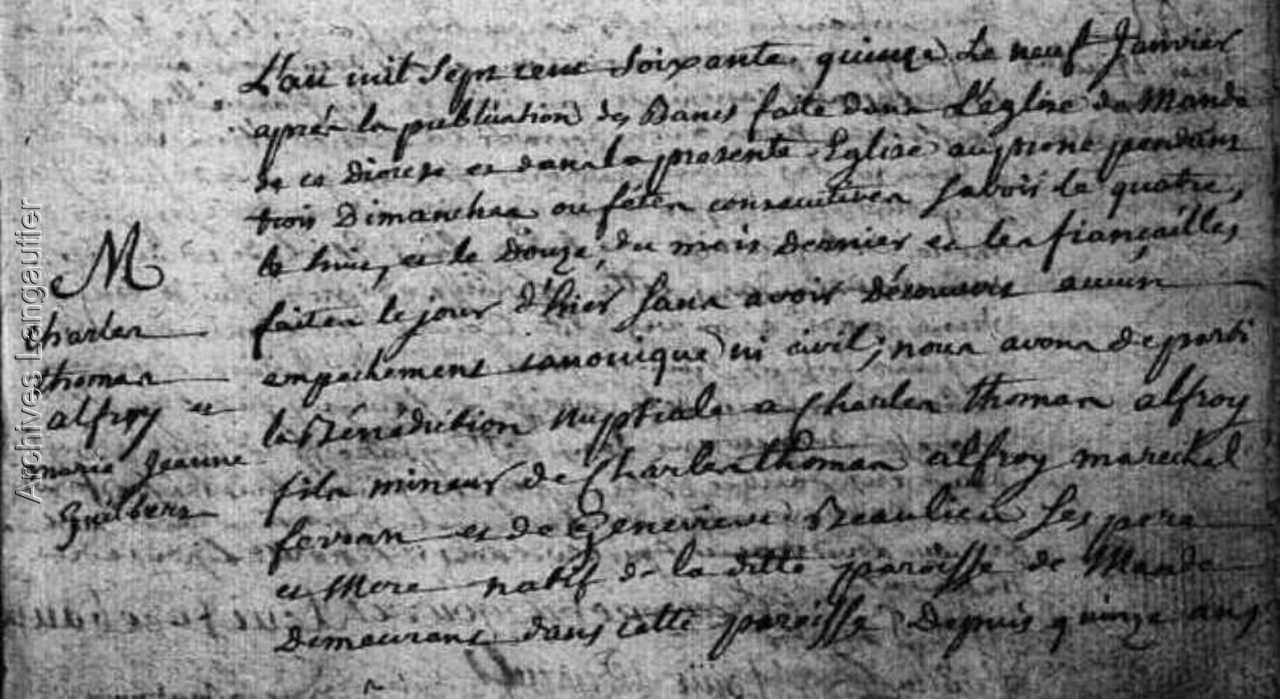 M
Charles
thomas
alfroy et
marie Jeanne
Guilbert
L'an mil sept cent soixante quinze Le neuf Janvier
après la publication des Bancs faite dans L'eglise de Mande
de ce diocese et dans la presente Eglise au prone pendant
trois Dimanches ou fêtes consecutives savoir le quatre,
le huit, et le douze, du mois dernier et les fiançailles
faites le jour d'hier sans avoir découvert aucun
empechement canonique ni civil, nous avons departi
la Bénédiction Nuptiale a Charles thomas alfroy
fils mineur de Charles thomas alfroy marechal
ferran et de Genevieve Beaulieu ses pere
et Mere natif de la ditte paroisse de Mande
demeurant dans cette paroisse Depuis quinze ans
Archives Langautier